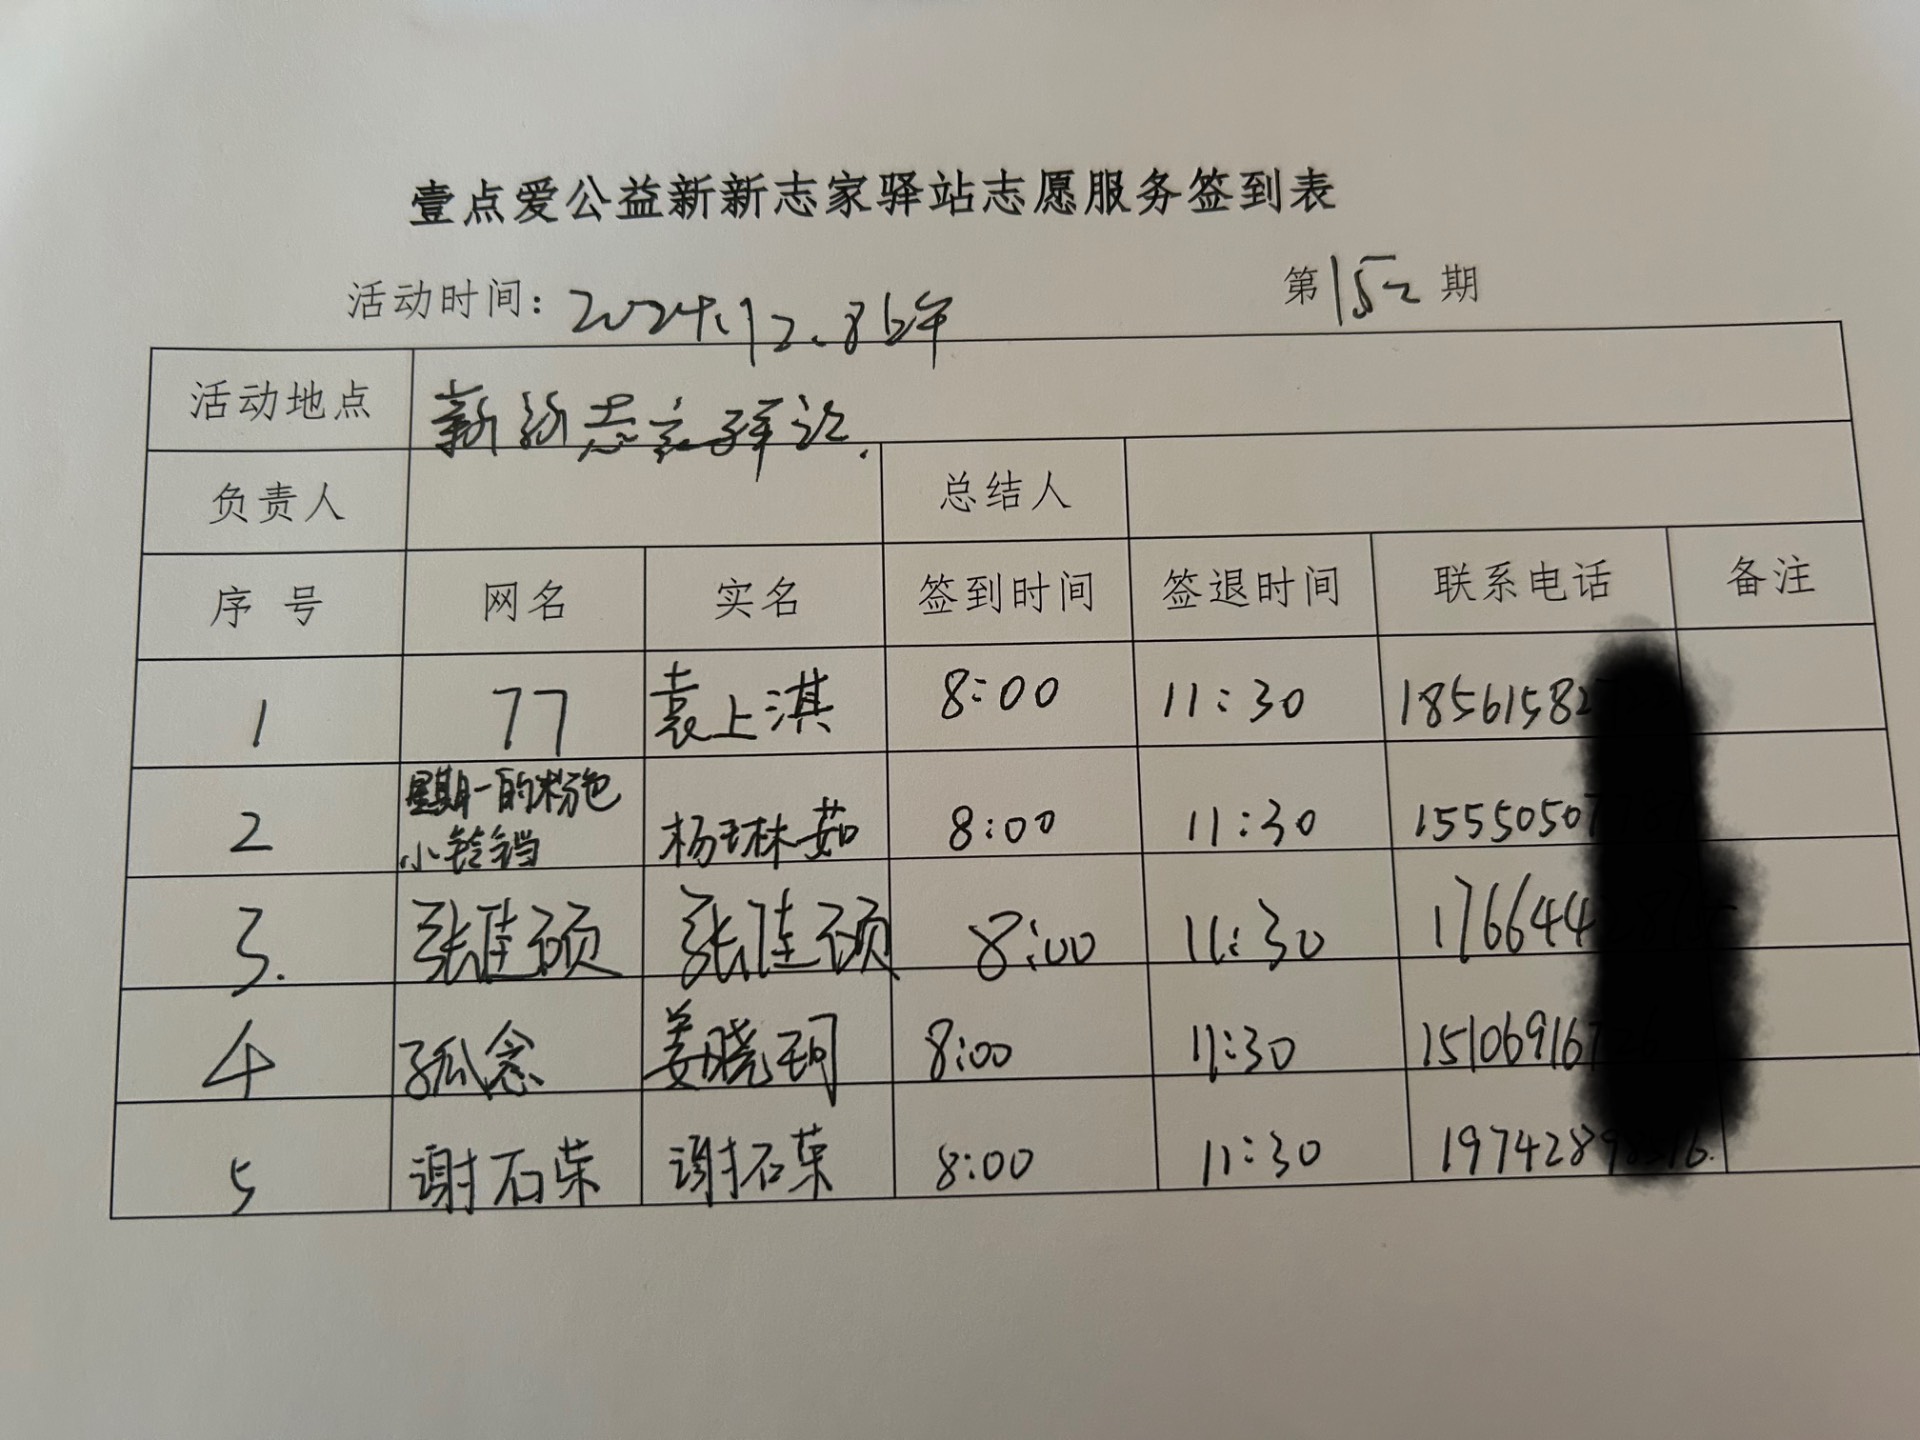 壹点爱公益新新志家驿站志愿服务签到表
活动时间：2024.12.8上午 第152期
活动地点 新新志家驿站.
负责人 总结人
序号 网名 实名 签到时间 签退时间 联系电话 备注
1 77 袁上淇 8:00 11:30 1856158
星期一的粉色
2 小铃铛 杨琳茹 8:00 11:30 1555050
3. 张佳硕 张佳硕 8:00 11:30 176644
4 孤念 姜晓珂 8:00 11:30 15106916
5 谢石荣 谢石荣 8:00 11:30 1974289